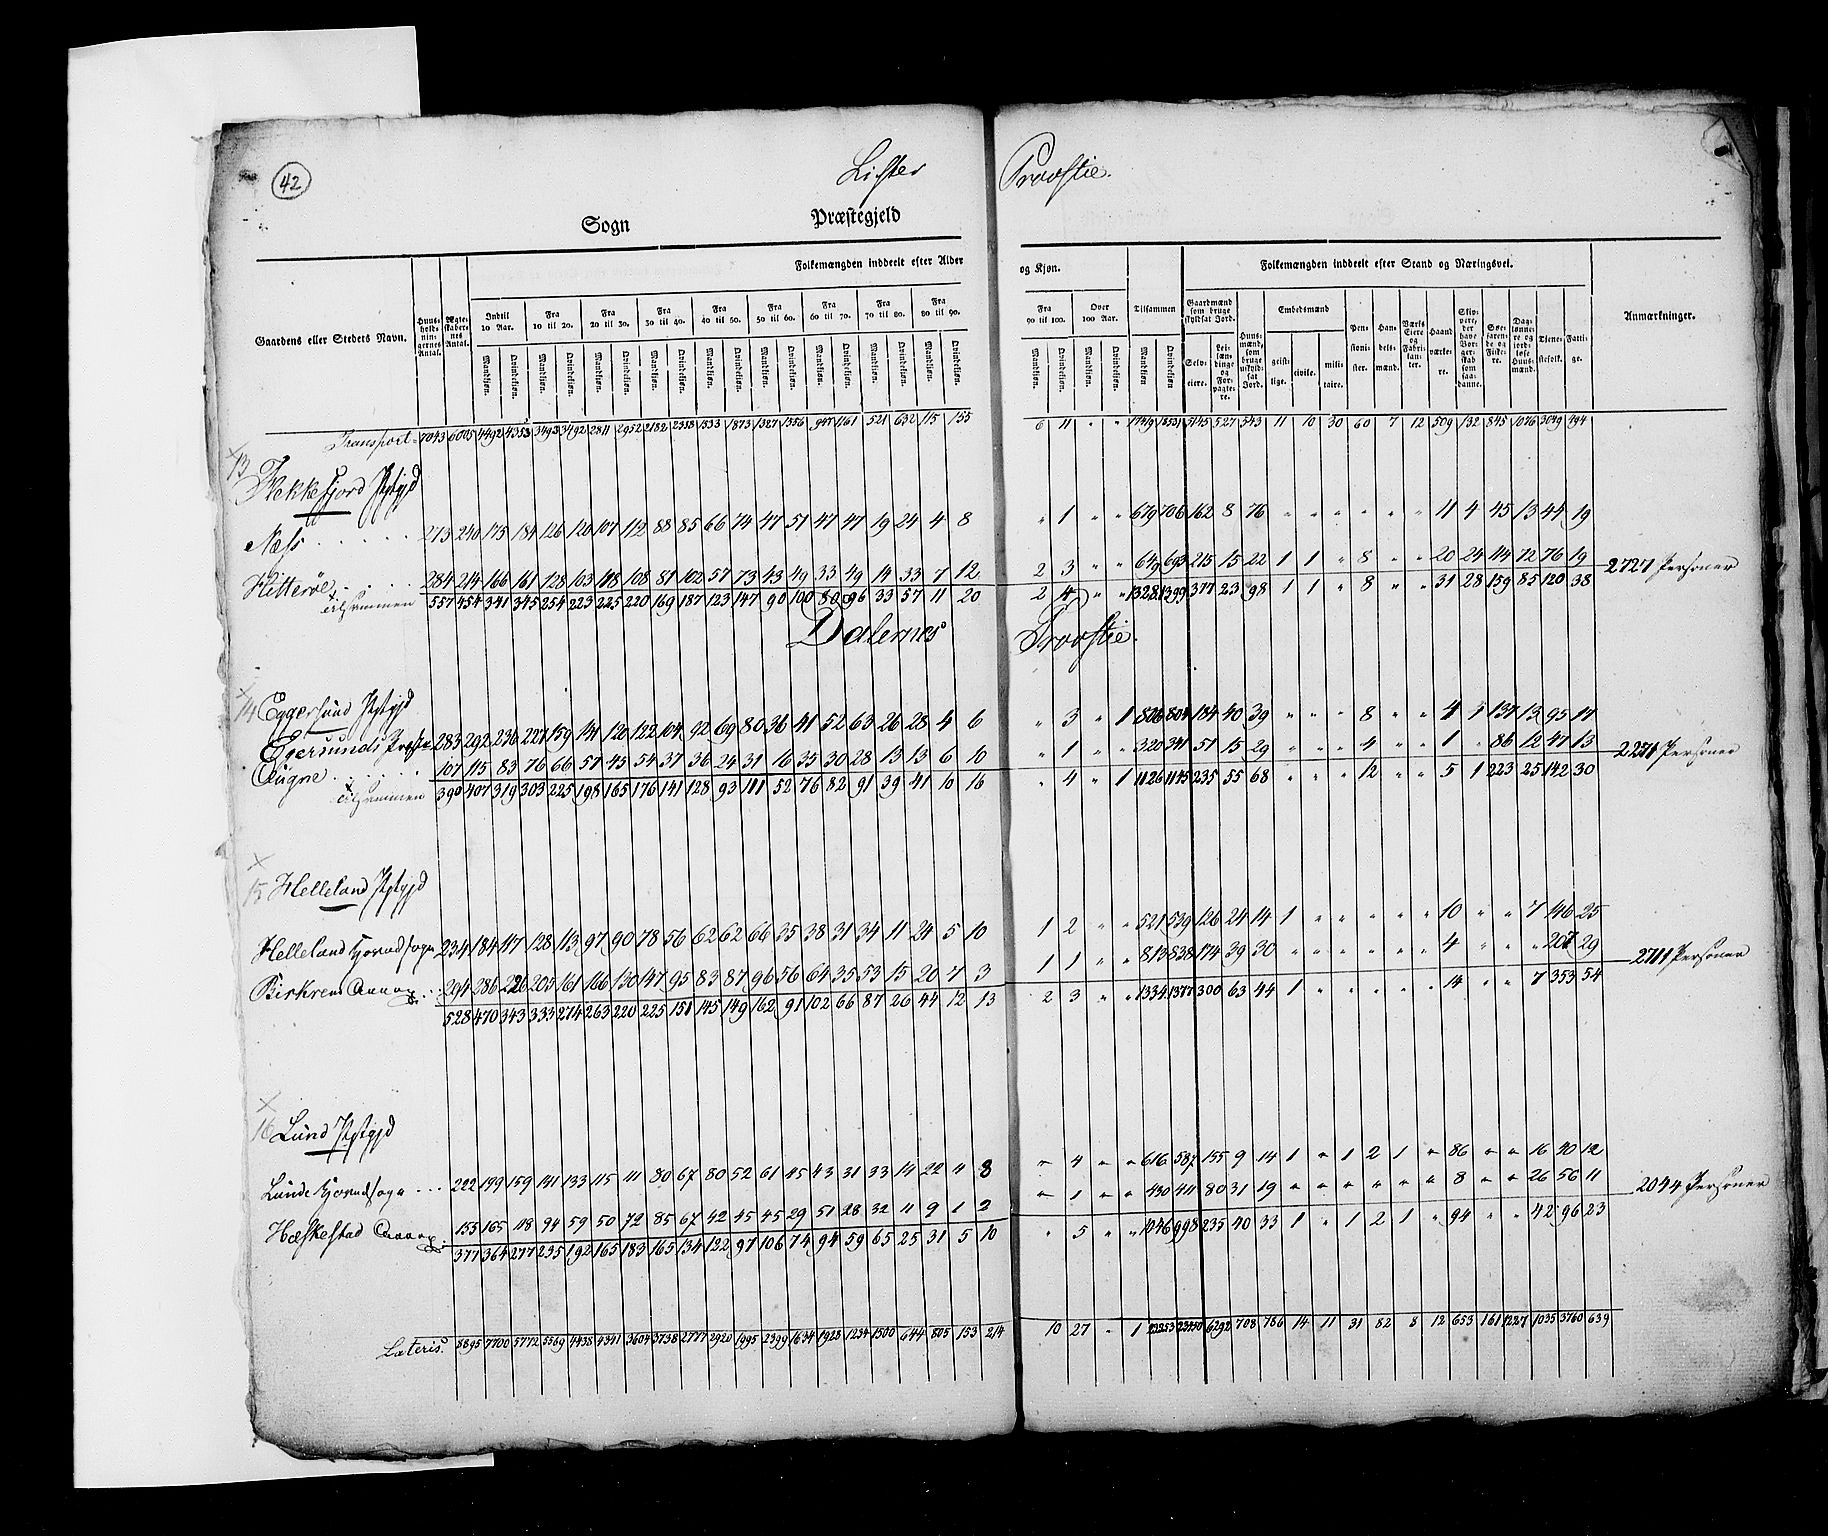 42
Lister Provstie.
Sogn Præstegjeld
Folkemængden inddeelt efter Alder og Kjøn. Folkemængden inddeelt efter Stand og Næringsvei.
Gaardens eller Stedets Navn. Huusholdningernes Antal. Ægteskabernes Antal. Indtil 10 Aar. Fra 10 til 20. Fra 20 til 30. Fra 30 til 40. Fra 40 til 50. Fra 50 til 60. Fra 60 til 70. Fra 70 til 80. Fra 80 til 90. Fra 90 til 100. Over 100 Aar. Tilsammen Gaardmænd som bruge skyldsat Jord. Huusmænd, som bruge uskyldsat Jord. Embedsmænd Pensionister. Handelsmænd. Værks Eiere og Fabrikanter. Haandværkere. Skippere, der have Borgerskab som saadanne. Søefarende og Fiskere. Daglønnere og jordløse Huusmænd. Tjenestefolk. Fattige. Anmærkninger.
Mandkjøn. Qvindekjøn. Mandkjøn. Qvindekjøn. Mandkjøn. Qvindekjøn. Mandkjøn. Qvindekjøn. Mandkjøn. Qvindekjøn. Mandkjøn. Qvindekjøn. Mandkjøn. Qvindekjøn. Mandkjøn. Qvindekjøn. Mandkjøn. Qvindekjøn. Mandkjøn. Qvindekjøn. Mandkjøn. Qvindekjøn. Mandkjøn. Qvindekjøn. Selveiere. Leilændinge og Forpagtere. geistlige. civile. militaire.
Transport 7043 6005 4492 4353 3493 3492 2811 2952 2182 2338 1533 1873 1327 1556 947 1161 521 632 115 155 6 11 " " 5145 527 543 11 10 30 60 7 12 509 132 845 1076 3049 494
13 Flekkefjord Pstgjd
Næss 273 240 175 184 126 120 107 112 88 85 66 74 47 51 47 47 19 24 4 8 " 1 " " 679 706 162 8 76 " " " " " " 11 4 45 13 44 19
Hitterøe 284 214 166 161 128 103 118 108 81 102 57 73 43 49 33 49 14 33 7 12 2 3 " " 649 693 215 15 22 1 1 " 8 " " 20 24 114 72 76 19 2727 Personer
tilsammen 557 454 341 345 254 223 225 220 169 187 123 147 90 100 80 96 33 57 11 20 2 4 " " 1328 1399 377 23 98 1 1 " 8 " " 31 28 159 85 120 38
Dalernes Provstie.
14 Eggersund Pstgjd
Egersunds 283 292 236 227 159 141 120 122 104 92 69 80 36 41 52 63 26 28 4 6 " 3 " 1 806 804 184 40 39 " " " 8 " " 4 1 137 13 95 17
Augne 107 115 83 76 66 57 45 54 37 36 24 31 16 35 30 28 13 13 6 10 " 1 " " 320 341 51 15 29 " " " 4 " " 1 " 86 12 47 13 2271 Personer
tilsammen 390 407 319 303 225 198 165 176 141 128 93 111 52 76 82 91 39 41 10 16 " 4 " 1 1126 1145 235 55 68 " " " 12 " " 5 1 223 25 142 30
15 Helleland Pstgjd
Helleland hovedsogn 234 184 117 128 113 97 90 78 56 62 62 66 35 38 31 34 11 24 5 10 1 2 " " 521 539 126 24 14 1 " " " " " 10 " " 7 146 25
Birkrem Annex 294 286 226 205 161 166 130 147 95 83 87 96 56 64 35 53 15 20 7 3 1 1 " " 813 838 174 39 30 " " " " " " 4 " " " 207 29 2711 Personer
528 470 343 333 274 263 220 225 151 145 149 162 91 102 66 87 26 44 12 13 2 3 " " 1334 1377 300 63 44 1 " " " " " 14 " " 7 353 54
16 Lund Pstgjd
Lunde hovedsogn 222 199 159 141 133 115 111 80 67 80 52 61 45 43 31 33 14 22 4 8 " 4 " " 616 587 155 9 14 1 " 1 2 1 " 86 " " 16 40 12
Hæskestad Annex 155 165 118 94 59 50 72 85 67 42 45 45 29 51 28 32 11 9 1 2 " 1 " " 430 411 80 31 19 " " " " " " 8 " " 26 56 11 2044 Personer
377 364 277 235 192 165 183 165 134 122 97 106 74 94 59 65 25 31 5 10 " 5 " " 1046 998 235 40 33 1 " 1 2 1 " 94 " " 42 96 23
Lateris. 8895 7700 5772 5569 4438 4341 3604 3738 2777 2920 1995 2399 1634 1928 1234 1500 644 805 153 214 10 27 " 1 6292 708 786 14 11 31 82 8 12 653 161 1227 1035 3760 639